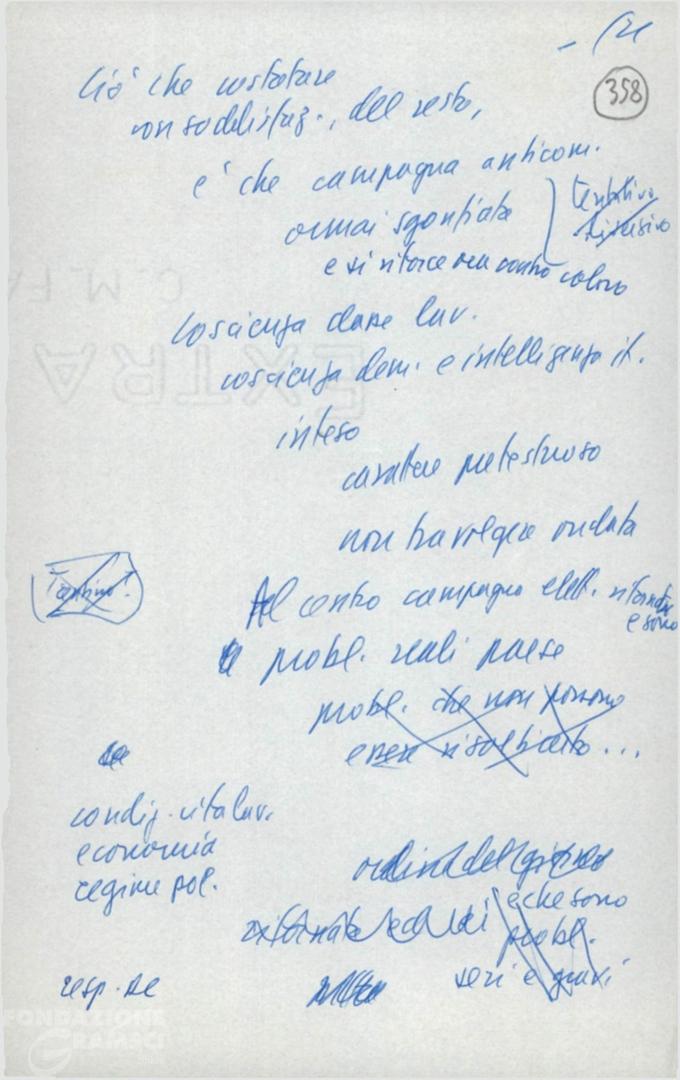 358
Ciò che constatare
con soddisfaz., del resto,
è che campagna anticom.
ormai sgonfiata
tentativo
e si ritorce ora contro coloro
coscienza classe lav.
coscienza dem. e intelligenza it.
inteso
carattere pretestuoso
non travolgere ondata
Al centro campagna elett. ritornati
e sono
probl. reali paese
probl. che non possono
essere risolti certo...
condiz. vita lav.
economia
regime pol.
ordine del giorno
e che sono
probl.
seri e gravi
resp. DC
FONDAZIONE
GRAMSCI
EXTRA